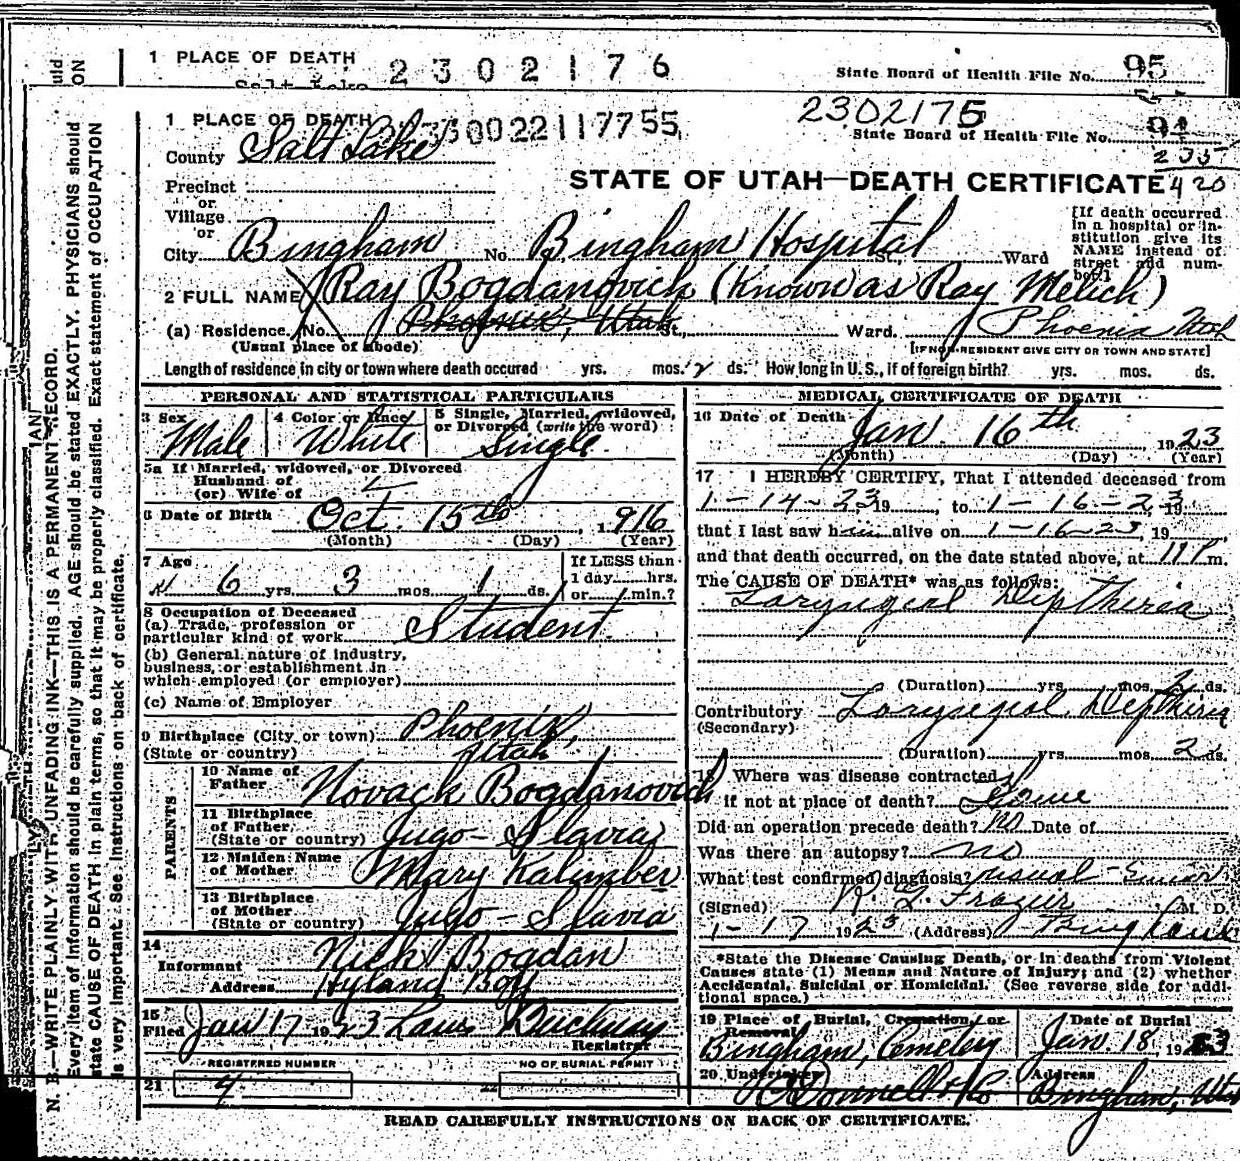 1 PLACE OF DEATH 2302176
State Board of Health File No. 95
1 PLACE OF DEATH
2302175
State Board of Health File No. 94
County Salt Lake
Precinct
or
Village
or
STATE OF UTAH—DEATH CERTIFICATE 420
[If death occurred in a hospital or institution give its NAME instead of street and number]
City Bingham No. Bingham Hospital St. Ward
2 FULL NAME Ray Bogdanovich (Known as Ray Melich)
(a) Residence, No. Phoenix, Utah St., Ward. Phoenix Utah
(Usual place of abode) [IF NON-RESIDENT GIVE CITY OR TOWN AND STATE]
Length of residence in city or town where death occured yrs. mos. 2 ds. How long in U. S., if of foreign birth? yrs. mos. ds.
PERSONAL AND STATISTICAL PARTICULARS
3 Sex Male
4 Color or Race White
5 Single, Married, widowed, or Divorced (write the word) Single
5a If Married, widowed, or Divorced
Husband of
(or) Wife of
6 Date of Birth Oct. 15th, 1916
(Month) (Day) (Year)
7 Age 6 yrs. 3 mos. 1 ds.
If LESS than
1 day hrs.
or min.?
8 Occupation of Deceased
(a) Trade, profession or
particular kind of work Student
(b) General nature of industry,
business, or establishment in
which employed (or employer)
(c) Name of Employer
9 Birthplace (City or town) Phoenix,
(State or country) Utah
PARENTS
10 Name of
Father Novack Bogdanovich
11 Birthplace
of Father
(State or country) Jugo-Slavia
12 Maiden Name
of Mother Mary Kalember
13 Birthplace
of Mother
(State or country) Jugo-Slavia
14
Informant Nick Bogdan
Address Hyland Boy
15
Filed Jan 17 1923
Registrar
REGISTERED NUMBER NO OF BURIAL PERMIT
21 4 22
MEDICAL CERTIFICATE OF DEATH
16 Date of Death Jan. 16th 1923
(Month) (Day) (Year)
17 I HEREBY CERTIFY, That I attended deceased from
1-14-23 19, to 1-16-23 19
that I last saw him alive on 1-16-23, 19
and that death occurred, on the date stated above, at 11 P m.
The CAUSE OF DEATH* was as follows:
Laryngial Diptheria
(Duration) yrs mos. 2 ds.
Contributory Laryngial Diptheria
(Secondary)
(Duration) yrs mos. 2 ds.
18 Where was disease contracted
if not at place of death? Home
Did an operation precede death? no Date of
Was there an autopsy? no
What test confirmed diagnosis? visual
(Signed) R. G. Frazier, M. D.
1-17 1923 (Address) Bingham
*State the Disease Causing Death, or in deaths from Violent
Causes state (1) Means and Nature of Injury; and (2) whether
Accidental, Suicidal or Homicidal. (See reverse side for additional space.)
19 Place of Burial, Cremation, or
Removal
Bingham, Cemetery
Date of Burial
Jan. 18, 1923
20 Undertaker O'Donnell & Co
Address
Bingham, Utah
READ CAREFULLY INSTRUCTIONS ON BACK OF CERTIFICATE.
N. B.—WRITE PLAINLY WITH UNFADING INK—THIS IS A PERMANENT RECORD.
Every item of information should be carefully supplied. AGE should be stated EXACTLY. PHYSICIANS should
state CAUSE OF DEATH in plain terms, so that it may be properly classified. Exact statement of OCCUPATION
is very important. See Instructions on back of certificate.